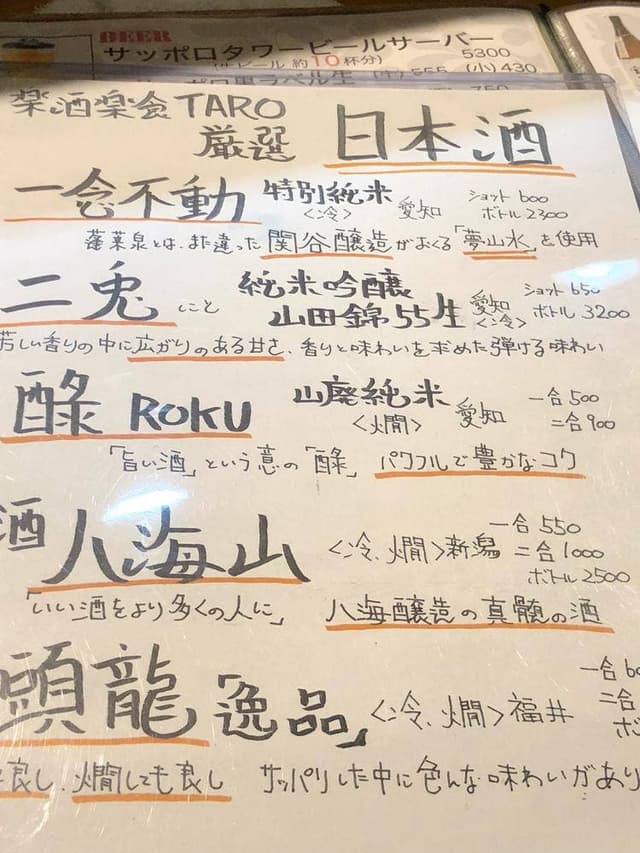 BEER
サッポロタワービールサーバー 5300
ビール 約10杯分) (小)430
楽酒楽食TARO
厳選 日本酒
一念不動 特別純米 <冷> 愛知 ショット600 ボトル2300
蓬莱泉とは、また違った関谷醸造がおくる「夢山水」を使用
二兎 にと 純米吟醸 山田錦55生 愛知 <冷> ショット650 ボトル3200
芳しい香りの中に広がりのある甘さ、香りと味わいを求めた弾ける味わい
醁 ROKU 山廃純米 <燗> 愛知 一合500 二合900
「旨い酒」という意の「醁」 パワフルで豊かなコク
酒 八海山 <冷、燗>新潟 一合550 二合1000 ボトル2500
「いい酒をより多くの人に」 八海醸造の真髄の酒
頭龍「逸品」<冷、燗>福井 一合 二合
良し、燗しても良し サッパリした中に色んな味わいがあり